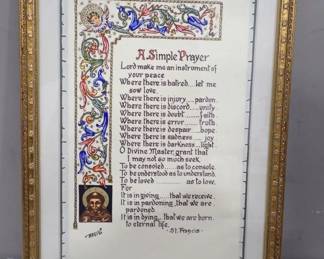 A Simple Prayer
Lord make me an instrument of
your peace
Where there is hatred....let me
sow love.
Where there is injury....pardon.
Where there is discord......unity.
Where there is doubt........faith.
Where there is error........truth.
Where there is despair....hope
Where there is sadness.....joy
Where there is darkness...light
O Divine Master, grant that
I may not so much seek
To be consoled......as to console.
To be understood as to understand.
To be loved............as to love.
For
It is in giving.....that we receive.
It is in pardoning, that we are
pardoned.
It is in dying...that we are born
to eternal life.
-St. Francis-